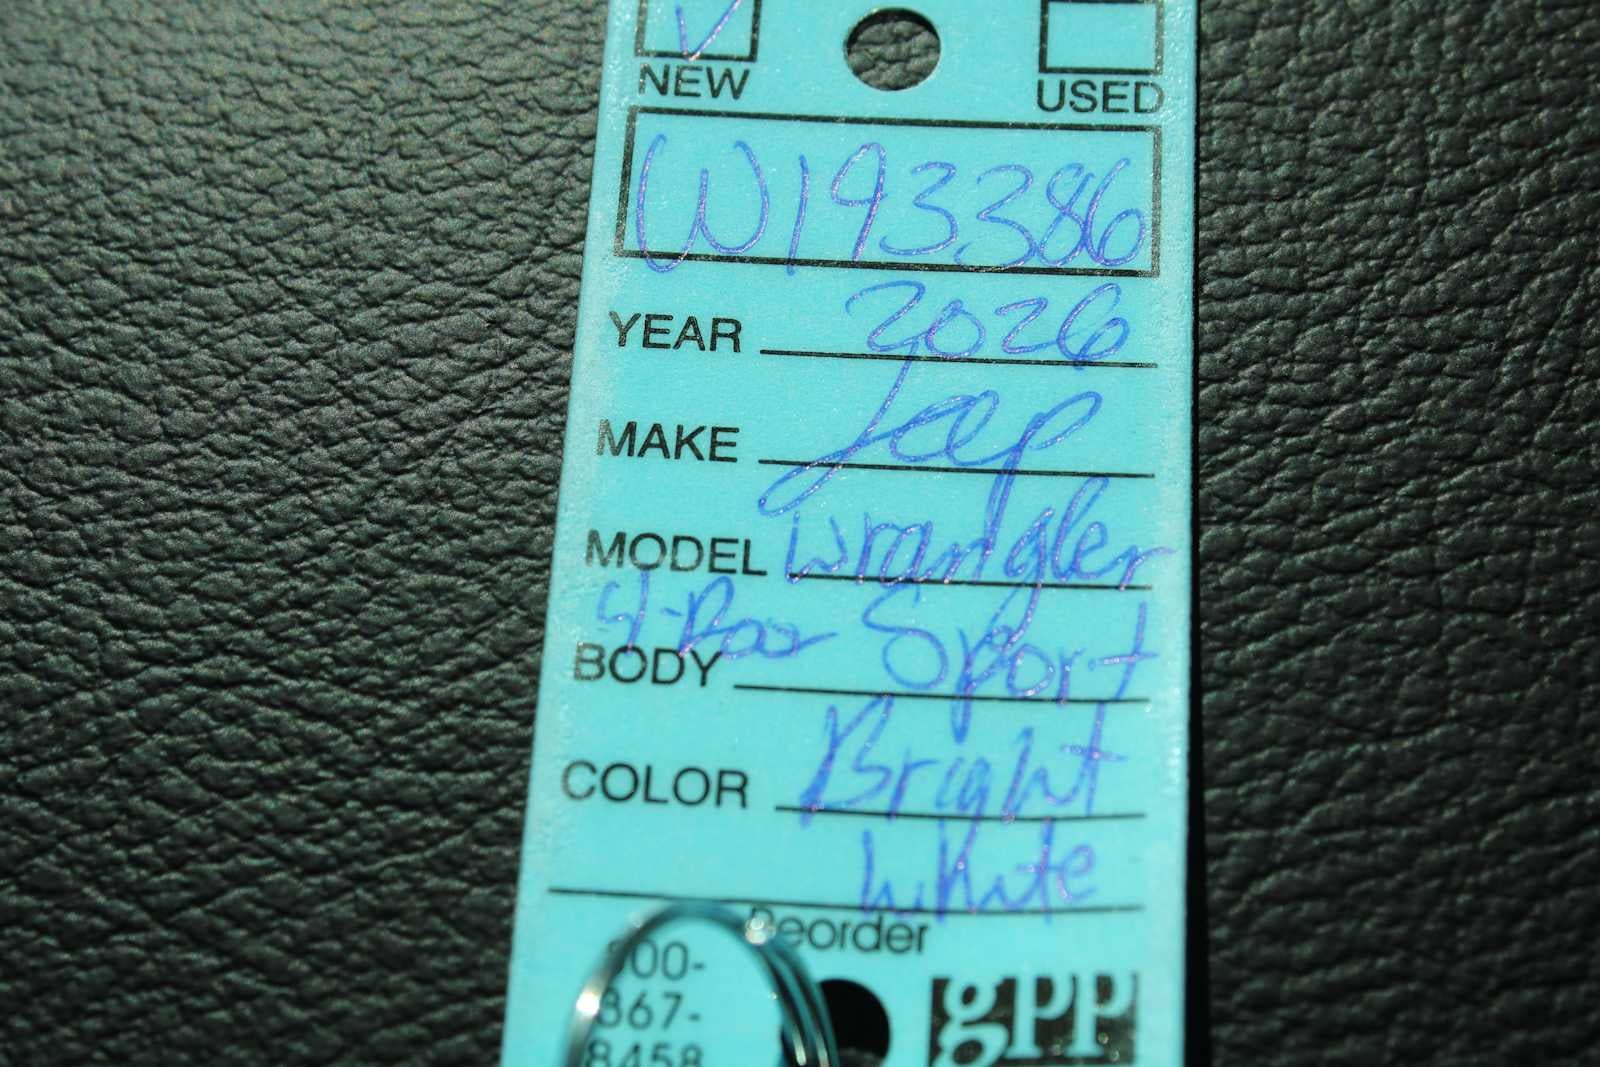 NEW USED
W193386
YEAR 2026
MAKE Jeep
MODEL Wrangler
4-Door Sport
BODY
COLOR Bright
White
Reorder
800-
367-
8458
gPP